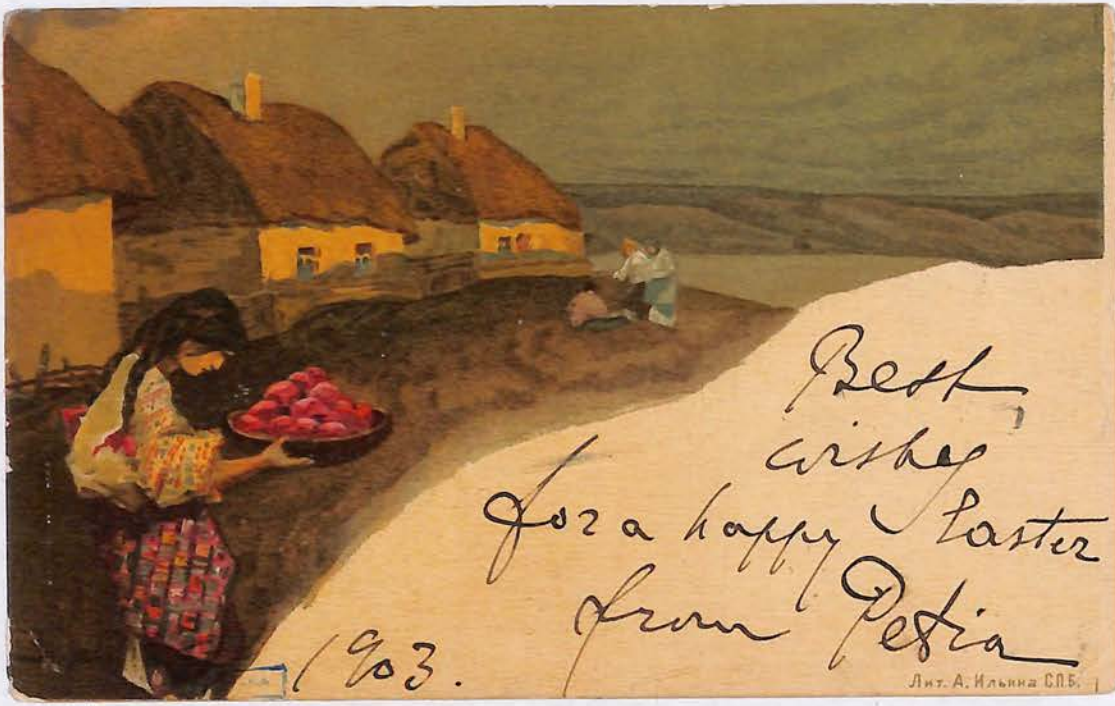 Best
wishes
for a happy Easter
from Petia
1903.
Лит. А. Ильина С.П.Б.